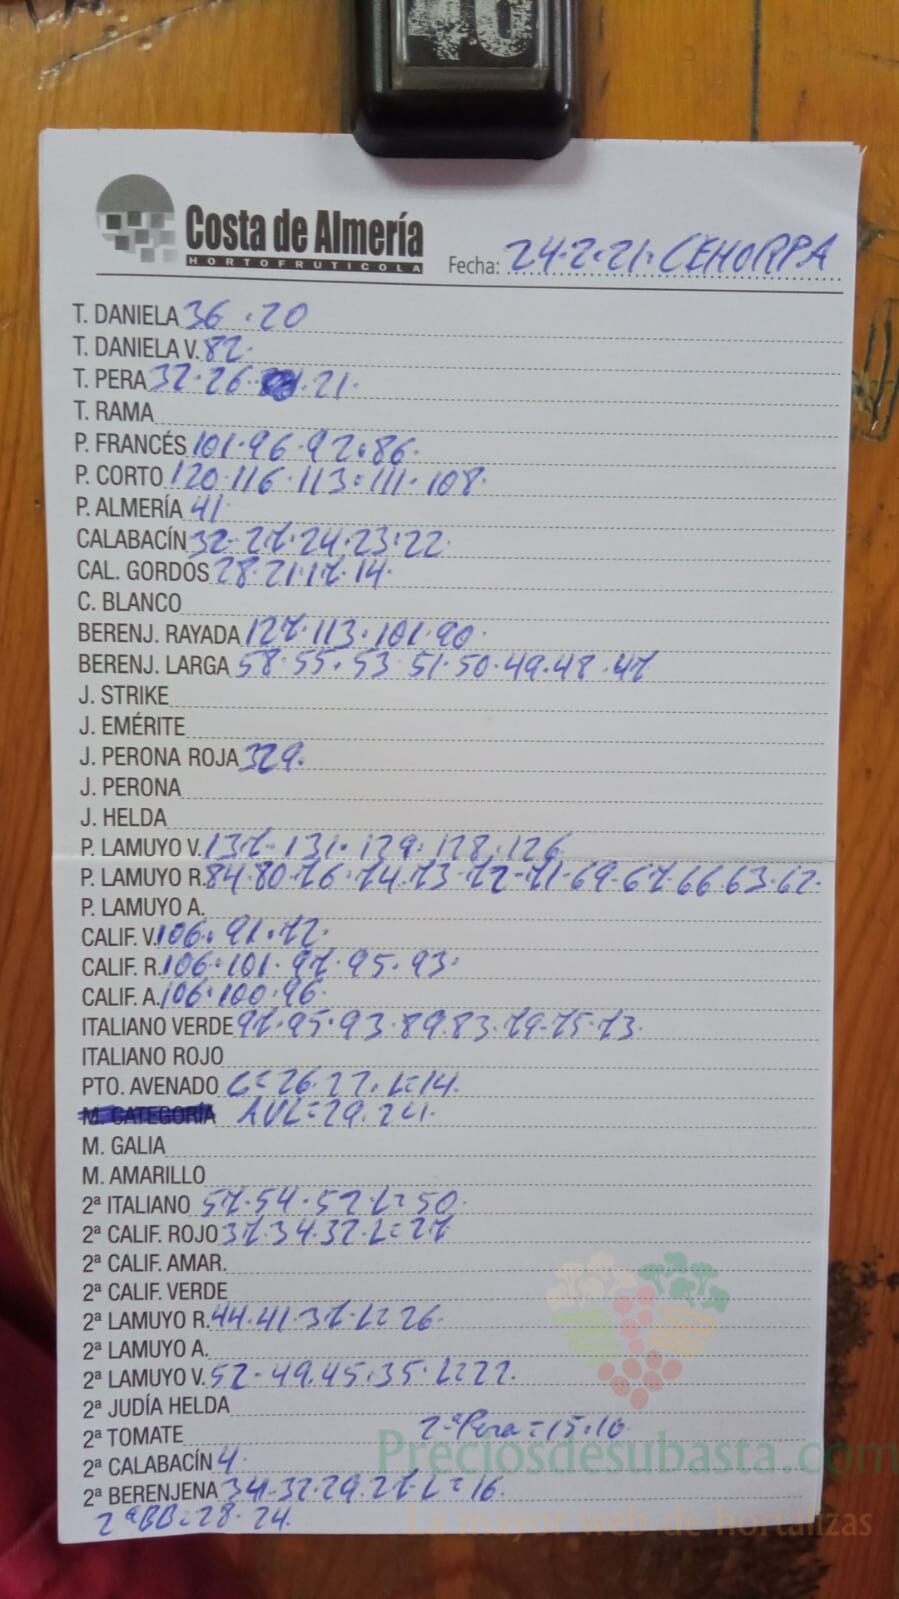 46
Costa de Almería
HORTOFRUTICOLA
Fecha: 24·2·21· CEHORPA
T. DANIELA 36 · 20
T. DANIELA V. 82·
T. PERA 32·26· ·21·
T. RAMA
P. FRANCÉS 101·96·92·86·
P. CORTO 120·116·113·111·108·
P. ALMERÍA 41·
CALABACÍN 32·27·24·23·22·
CAL. GORDOS 28·21·17·14·
C. BLANCO
BERENJ. RAYADA 127·113·101·90·
BERENJ. LARGA 58·55·53·51·50·49·48·47
J. STRIKE
J. EMÉRITE
J. PERONA ROJA 329·
J. PERONA
J. HELDA
P. LAMUYO V. 137·131·129·128·126
P. LAMUYO R. 84·80·76·74·73·72-71-69-67·66·63·62·
P. LAMUYO A.
CALIF. V. 106·91·72·
CALIF. R. 106·101·97·95·93·
CALIF. A. 106·100·96·
ITALIANO VERDE 97·95·93·89·83·79-75·73·
ITALIANO ROJO
PTO. AVENADO C=26·22· L=14·
M. CATEGORÍA AVL=29·
M. GALIA
M. AMARILLO
2ª ITALIANO 57·54·52·L=50·
2ª CALIF. ROJO 37·34·32·L=27
2ª CALIF. AMAR.
2ª CALIF. VERDE
2ª LAMUYO R. 44·41·37·L=26·
2ª LAMUYO A.
2ª LAMUYO V. 52-49·45·35·L=22·
2ª JUDÍA HELDA
2ª TOMATE 2ªPera=15·10
Preciosdesubasta.com
2ª CALABACÍN 4·
2ª BERENJENA 34-32·29·27·L=16·
2ªBB=28·24·
La mayor web de hortalizas